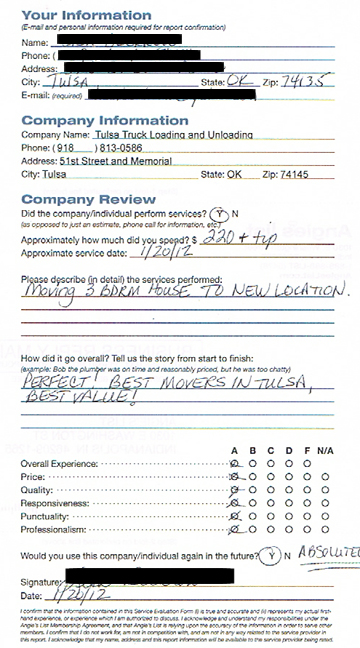 Your Information
(E-mail and personal information required for report confirmation)
Name:
Phone: (
Address:
City: TULSA State: OK Zip: 74135
E-mail: (required)
Company Information
Company Name: Tulsa Truck Loading and Unloading
Phone: (918 ) 813-0586
Address: 51st Street and Memorial
City: Tulsa State: OK Zip: 74145
Company Review
Did the company/individual perform services? Y N
(as opposed to just an estimate, phone call for information, etc.)
Approximately how much did you spend? $ 220 + tip
Approximate service date: 1/20/12
Please describe (in detail) the services performed:
Moving 3 BDRM HOUSE TO NEW LOCATION.
How did it go overall? Tell us the story from start to finish:
(example: Bob the plumber was on time and reasonably priced, but he was too chatty)
PERFECT! BEST MOVERS IN TULSA,
BEST VALUE!
A B C D F N/A
Overall Experience:
Price:
Quality:
Responsiveness:
Punctuality:
Professionalism:
Would you use this company/individual again in the future? Y N ABSOLUTEL
Signature:
Date: 1/20/12
I confirm that the information contained in this Service Evaluation Form (i) is true and accurate and (ii) represents my actual first-
hand experience, or experience which I am authorized to discuss. I acknowledge and understand my responsibilities under the
Angie's List Membership Agreement, and that Angie's List is relying upon the accuracy of the information in order to serve other
members. I confirm that I do not work for, am not in competition with, and am not in any way related to the service provider in
this report. I acknowledge that my name, address and this report information will be available to the service provider being rated.